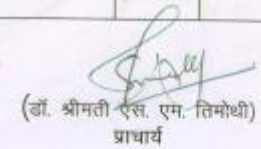 (डॉ. श्रीमती एस. एम. तिमोथी)
प्राचार्य